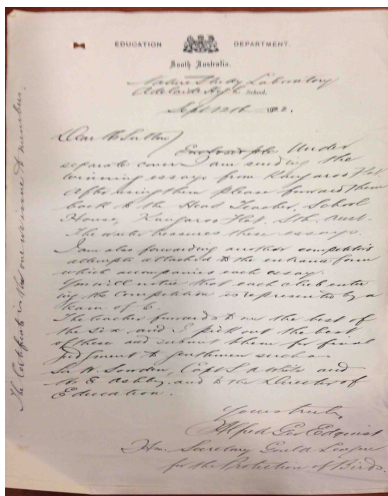 EDUCATION DEPARTMENT.
South Australia.
Nature Study Laboratory
Adelaide High School.
Sept 12th 1922.
Dear Mr Sutton,
Under
separate cover I am sending the
winning essays from Kangaroo Flat.
After using them please forward them
back to the Head Teacher, School
House, Kangaroo Flat, Sth. Aust.
The writer treasures these essays.
I am also forwarding another competitor's
attempt attached to the entrance form
which accompanies each essay.
You will notice that each club enter
ing the competition is represented by a
team of 6.
The teacher forwards to me the best of
the six, and I pick out the best
of these and submit them for final
judgment to gentlemen such as
Sir W. Sowden, Capt S. A. White and
Mr E Ashby, and to the Director of
Education.
Yours truly,
Alfred Geo Edquist
Hon. Secretary Gould League
for the Protection of Birds.
The Certificate is the one we issue to members.